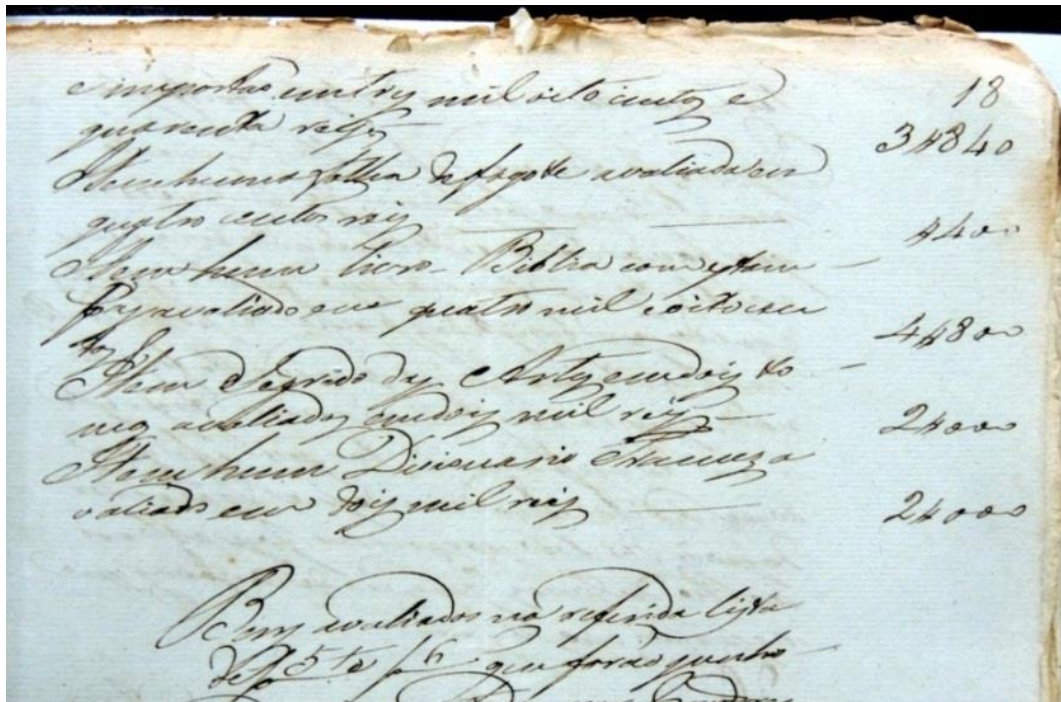 e importao em trez mil oito centos e 18
quarenta reis 3$840
Item huma folha de fagote avaliada em
quatro centos reis $400
Item hum livro Biblia com estam
pas avaliado em quatro mil e oito cen
tos 4$800
Item Segredo das Artes em dois to
mos avaliados em dois mil reis 2$000
Item hum Dicionario Francez a
valiado em dois mil reis 2$000
Bens avaliados na referida lista
de f 5 te f 6 que forao